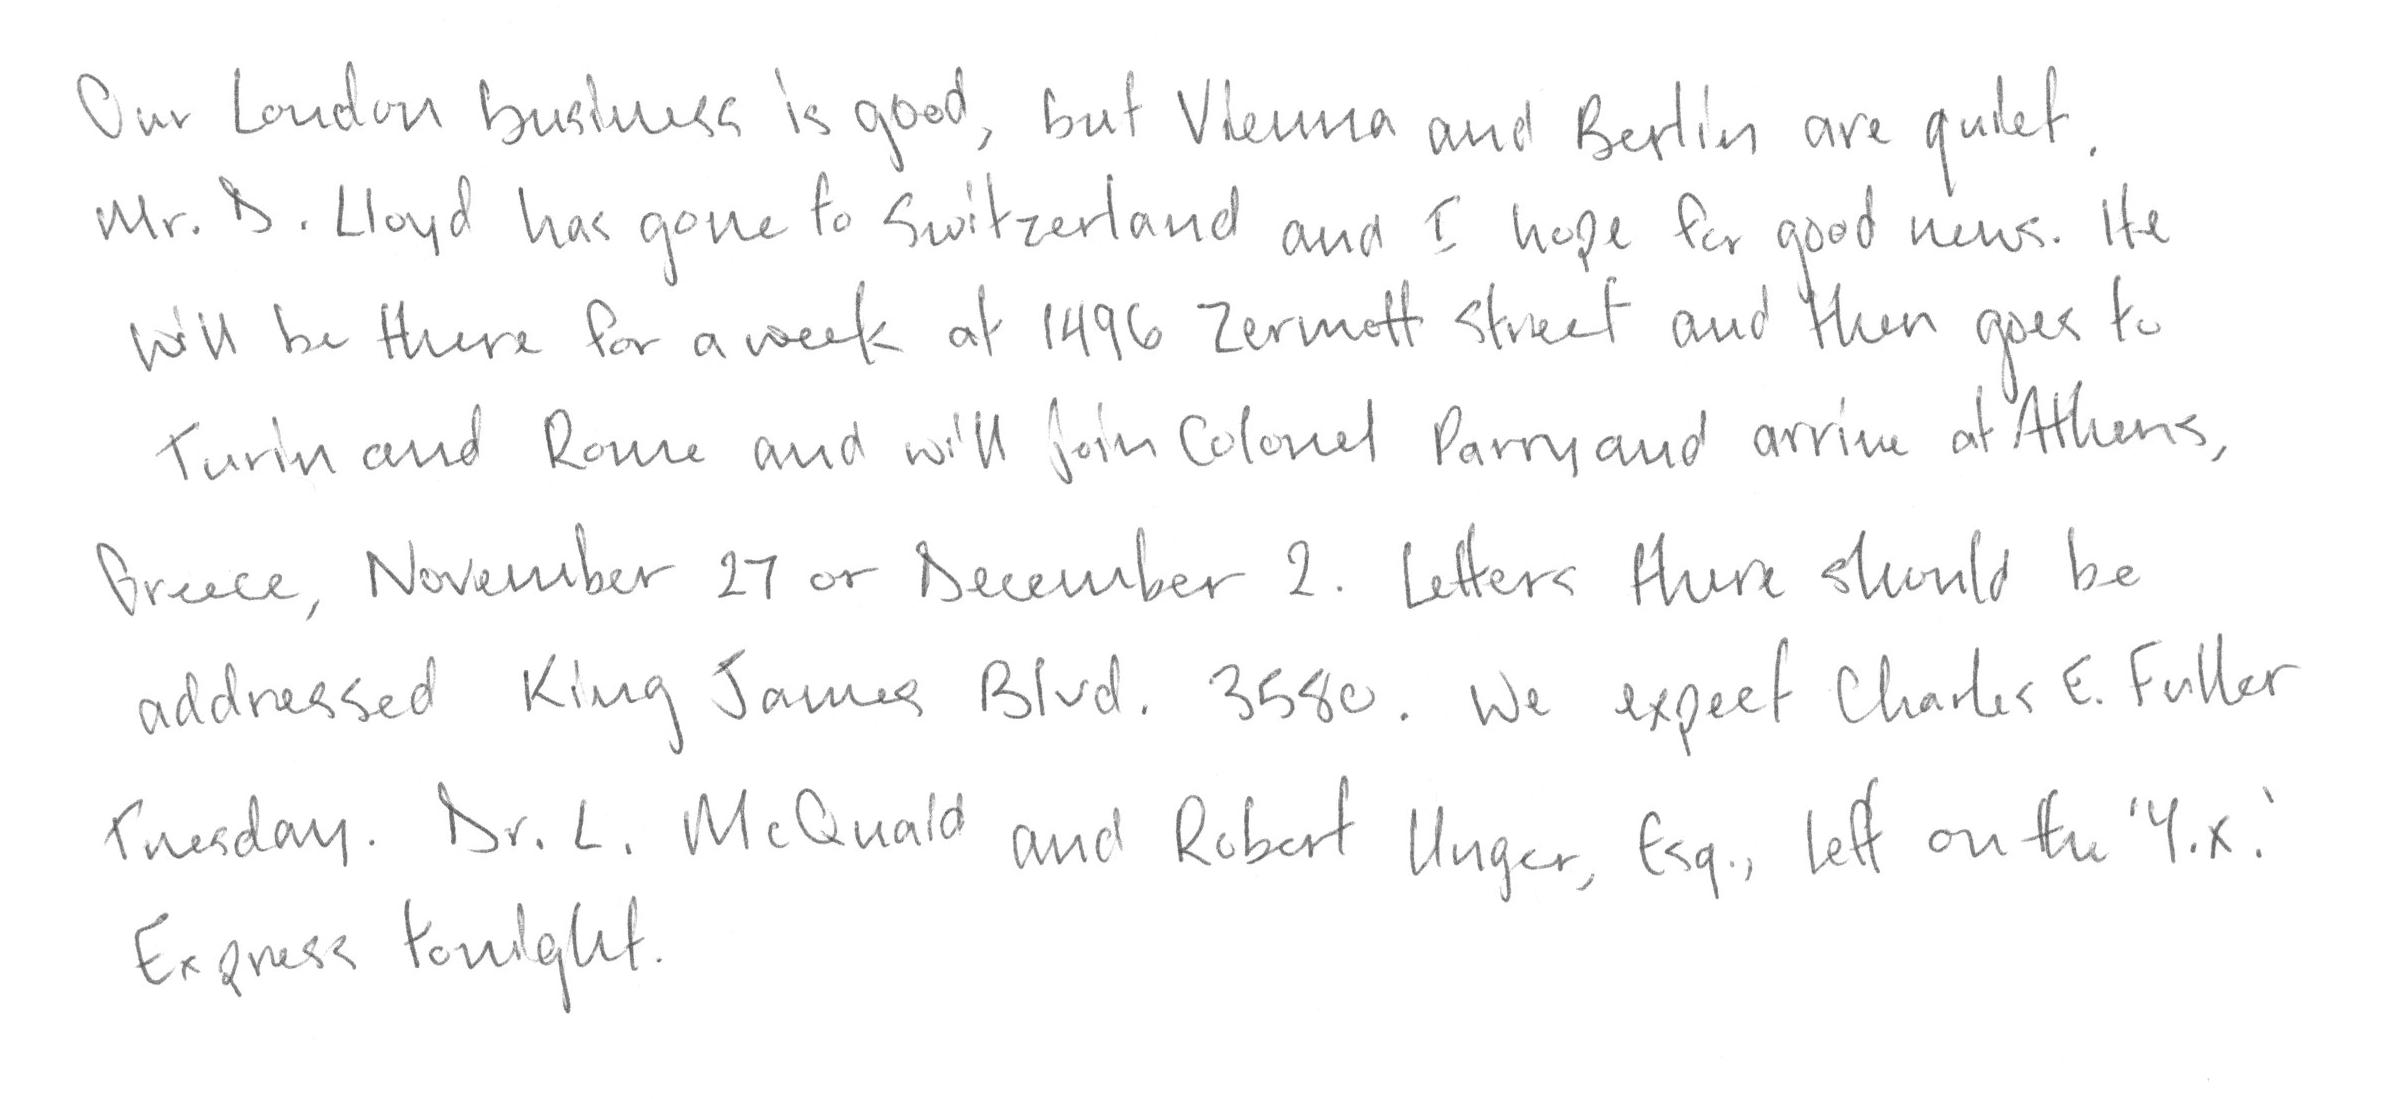 Our London business is good, but Vienna and Berlin are quiet.
Mr. D. Lloyd has gone to Switzerland and I hope for good news. He
will be there for a week at 1496 Zermott Street and then goes to
Turin and Rome and will join Colonel Parry and arrive at Athens,
Greece, November 27 or December 2. Letters there should be
addressed King James Blvd. 3580. We expect Charles E. Fuller
Tuesday. Dr. L. McQuaid and Robert Unger, Esq., left on the 'Y.X.'
Express tonight.